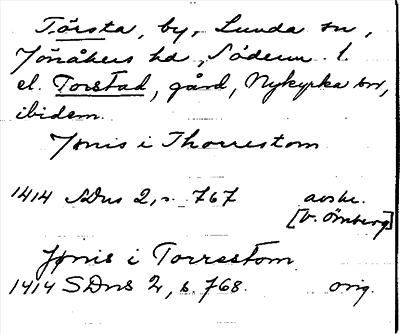 Törsta, by, Lunda sn,
Jönåkers hd, Söderm. l.
el. Torstad, gård, Nykyrka sn,
ibidem.
Jønis i Thorrestom
1414 SDns 2, s. 767 avskr.
[v. Örnberg]
Jønis i Torrestom
1414 SDns 2, s. 768. orig.